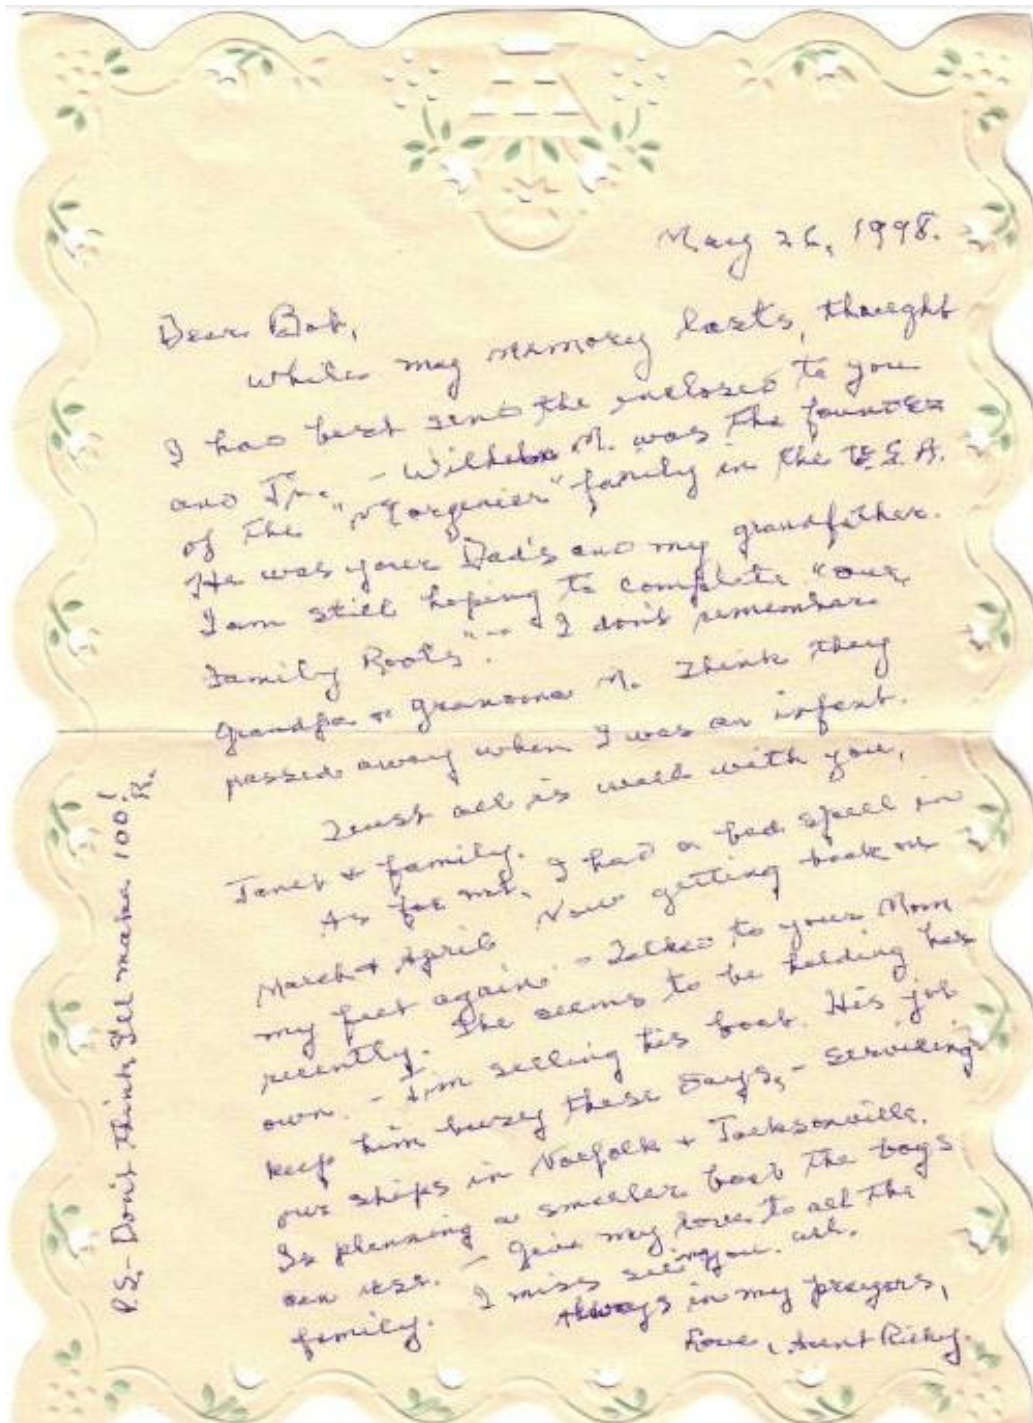 May 26, 1998.
Dear Bob,
while my memory lasts, thought
I had best send the enclosed to you
and Jr. - Wilhelm M. was the founder
of the "Morgenier" family in the U.S.A.
He was your Dad's and my grandfather.
I am still hoping to complete "our
Family Roots". -- I don't remember
Grandpa or Grandma M. Think they
passed away when I was an infant.
Trust all is well with you,
Janet & family.
As for me, I had a bad spell in
March & April Now getting back on
my feet again. - Talked to your Mom
recently. She seems to be holding her
own. - Jim selling his boat. His job
keep him busy these days, - servicing
our ships in Norfolk & Jacksonville.
Is planning a smaller boat the boys
can use. - Give my love to all the
family. I miss seeing you all.
Always in my prayers,
Love, Aunt Ricky.
P.S. - Don't think I'll make 100!
R.